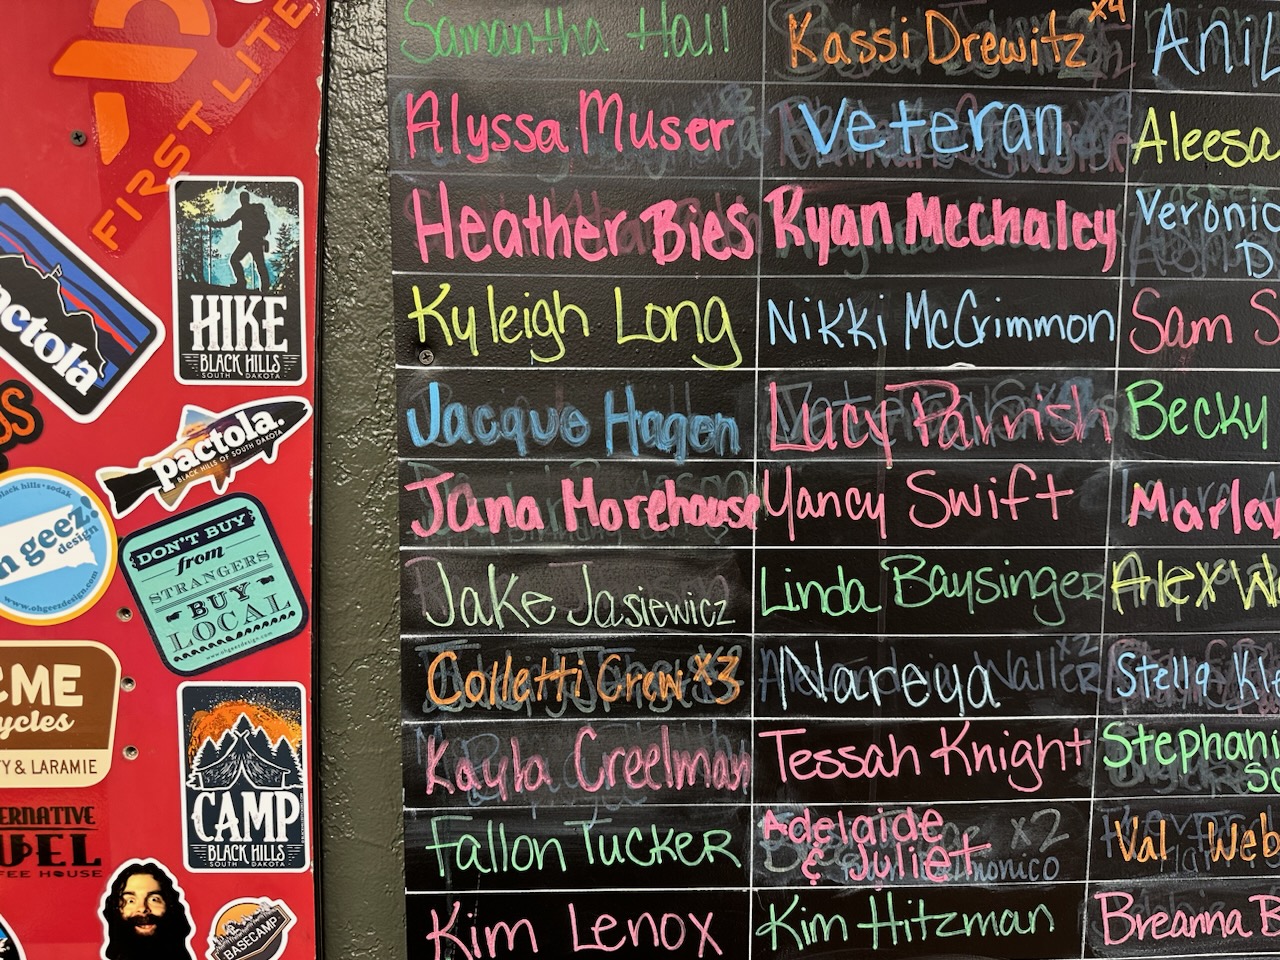 FIRST LITE
HIKE
BLACK HILLS
SOUTH DAKOTA
pactola.
BLACK HILLS OF SOUTH DAKOTA
black hills • sodak
geez.
design
www.ohgeezdesign.com
DON'T BUY
from
STRANGERS
BUY
LOCAL
www.ohgeezdesign.com
& LARAMIE
CAMP
BLACK HILLS
SOUTH DAKOTA
BASECAMP
Samantha Hall
Alyssa Muser
Heather Bies
Kyleigh Long
Jacque Hagen
Jana Morehouse
Jake Jasiewicz
Colletti Crew x3
Kayla Creelman
Fallon Tucker
Kim Lenox
Kassi Drewitz x4
Veteran
Ryan McChaley
Nikki McCrimmon
Lucy Parrish
Yancy Swift
Linda Baysinger
Nareya
Tessah Knight
Adelaide
& Juliet
Kim Hitzman
Aleesa
Sam S
Becky
Alex W
Stella Kle
Val Web
Breanna B